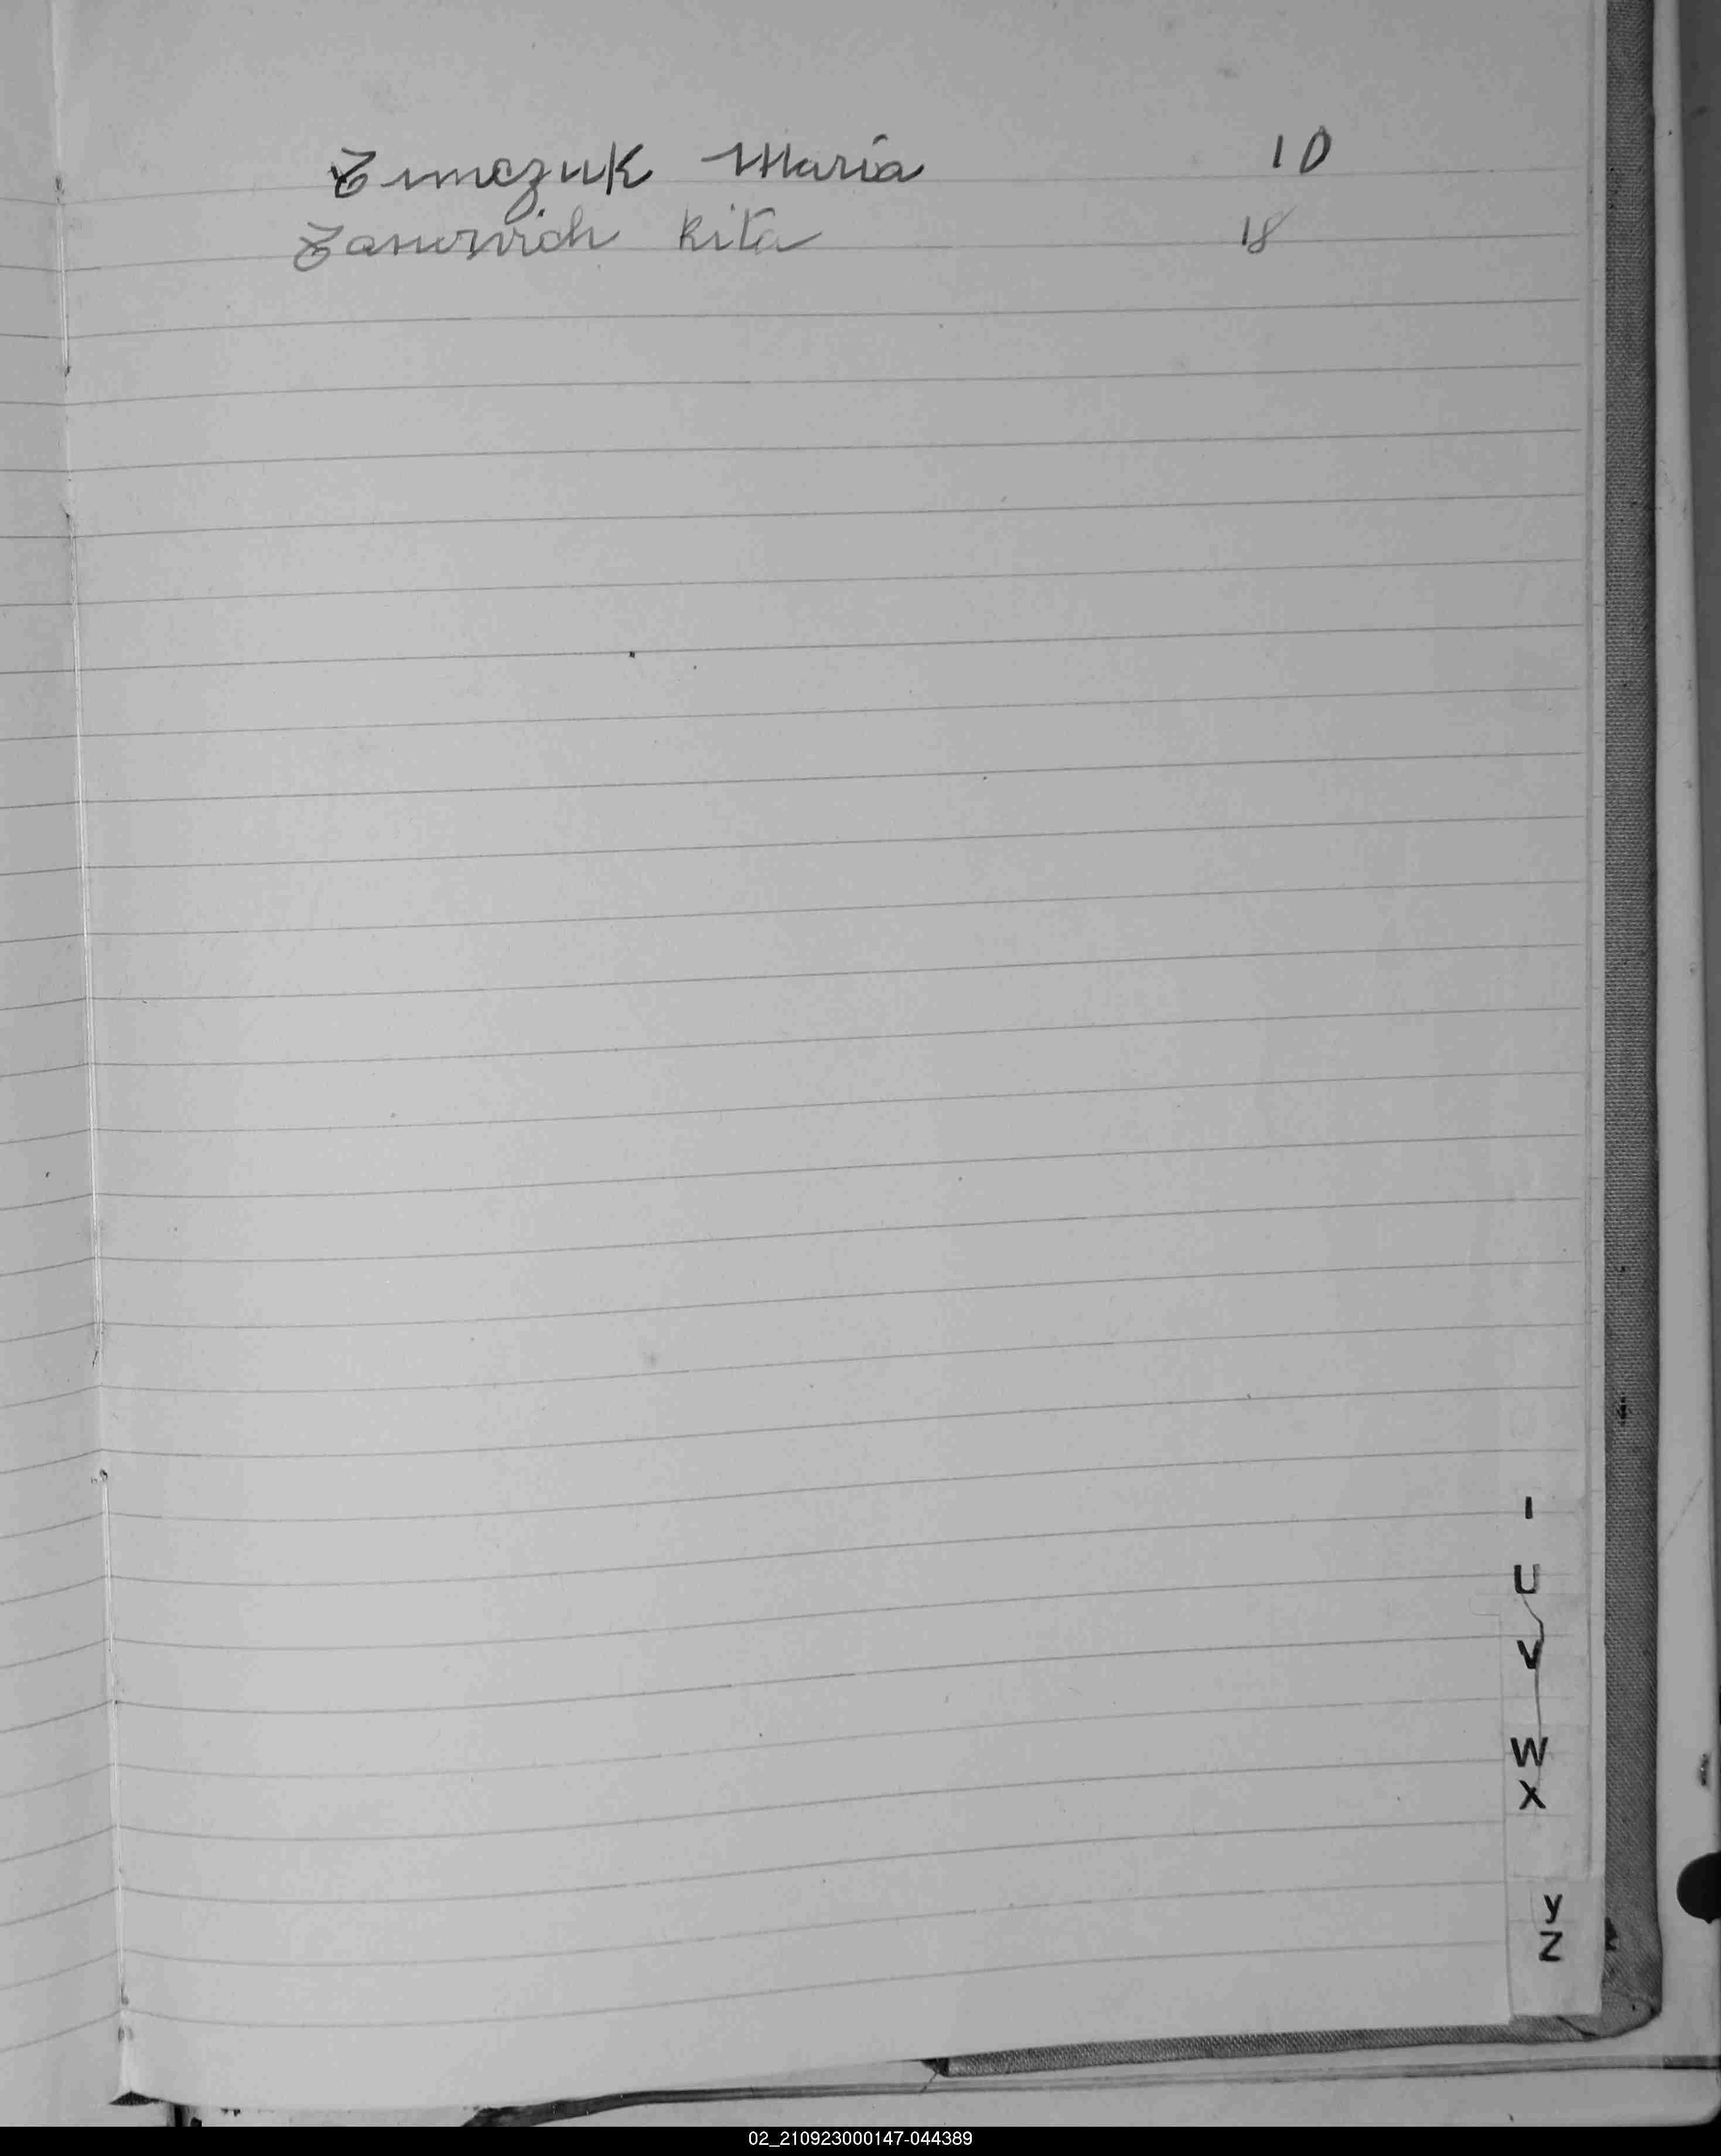 Zimczuk Maria 10
Rita 18
I
U
V
W
X
Y
Z
02_210923000147-044389